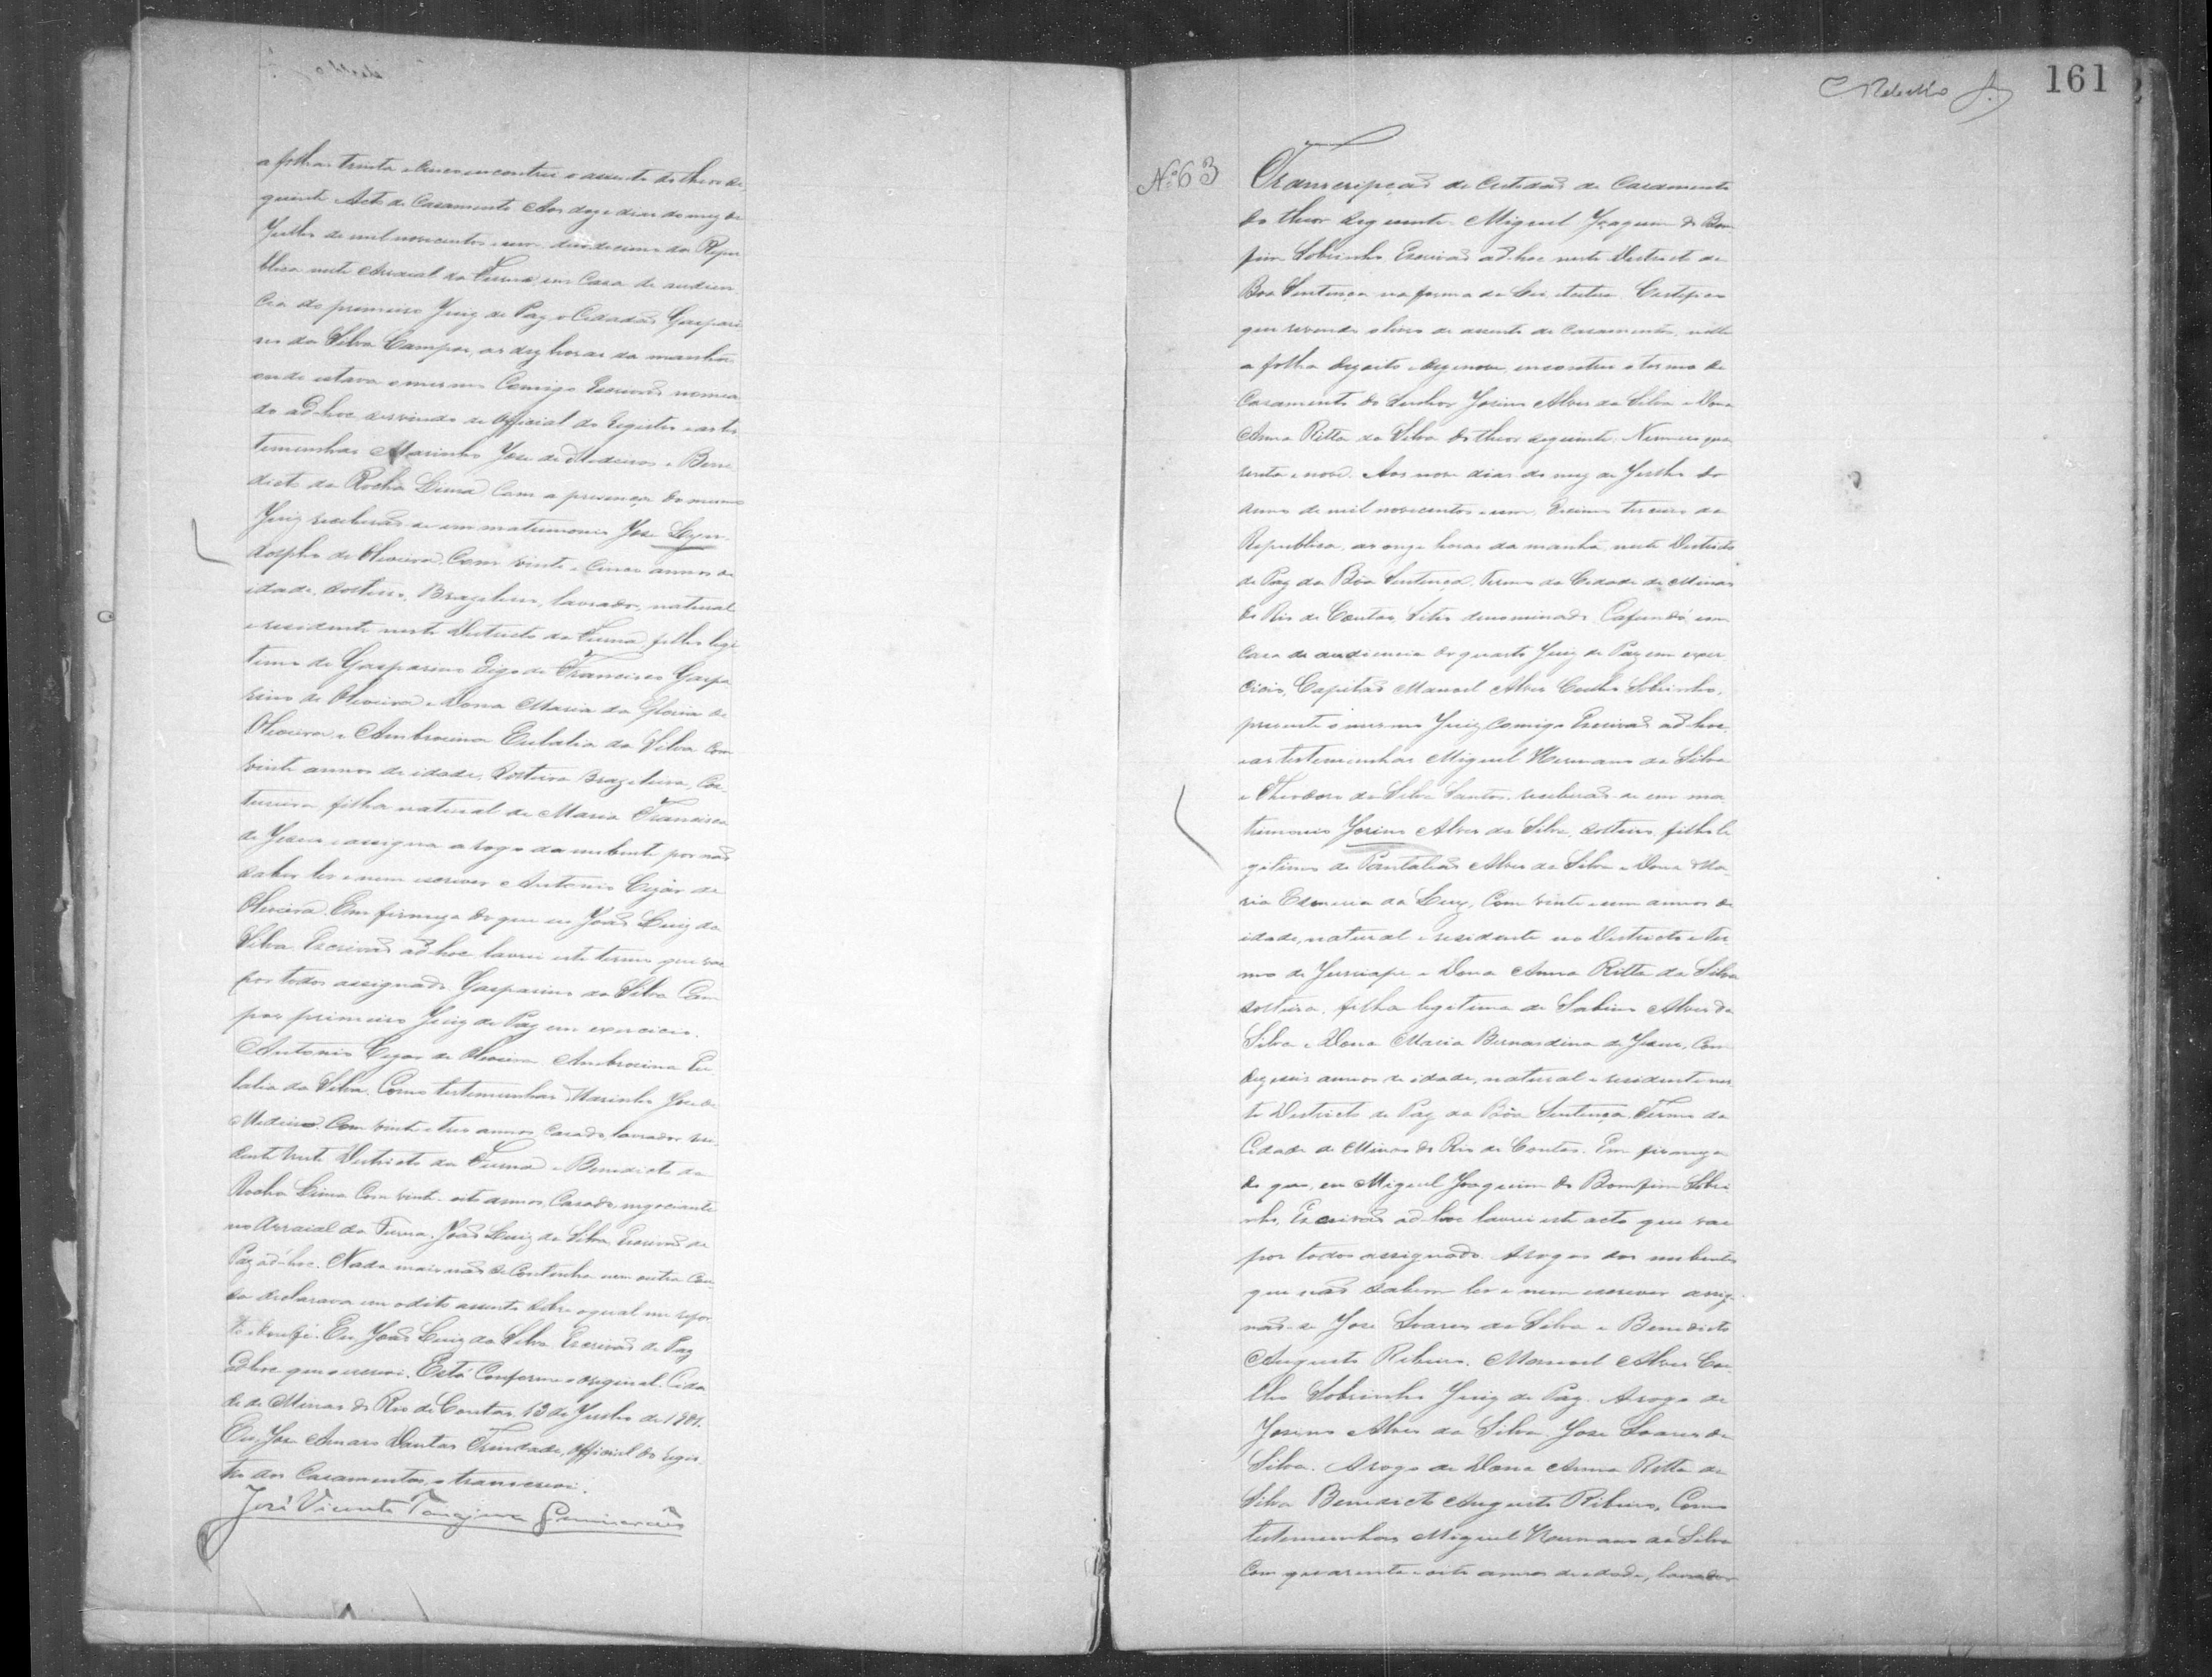 a folhas trinta e cinco encontrei o assento do theor se
guinte Acto de Casamento Aos doze dias do mez de
Julho de mil novecentos e um duodecimo da Repu
blica neste Arraial da Furna em Casa de audien
cia do primeiro Juiz de Paz o Cidadão Gaspari
no da Silva Campos, as dez horas da manhã
onde estava o mesmo Comigo Escrivão nomea
do ad-hoc servindo de Official do Registro e as tes
temunhas Marinho Jose de Medeiros e Bene
dicto da Rocha Lima Com a presença do mesmo
Juiz receberão-se em matrimonio Jose
de Oliveira, Com vinte e Cinco annos de
idade, solteiro, Brazileiro, lavrador, natural
e residente neste Districto da Furna, filho legi
timo de Gasparino Digo de Francisco Gaspa
rino de Oliveira e Dona Maria da Gloria de
Oliveira, e Ambrosina Eulalia da Silva com
vinte annos de idade, Solteira Brazileira, Cos
tureira, filha natural de Maria Francisca
de Jesus e assigna a rogo da nubente por não
saber ler e nem escrever Antonio Cezar de
Oliveira. Em firmeza do que eu João Luiz da
Silva Escrivão ad-hoc lavrei este termo que vae
por todos assignado. Gasparino da Silva Cam
pos primeiro Juiz de Paz em exercicio.
Antonio Cezar de Oliveira Ambrosina Eu
lalia da Silva. Como testemunhas Marinho Jose de
Medeiros Com vinte e tres annos, Casado, lavrador resi
dente neste Districto da Furna e Benedicto da
Rocha Lima Com vinte oito annos, Casado, negociante
no Arraial da Furna. João Luiz da Silva, Escrivão de
Paz ad-hoc. Nada mais não se Continha nem outra Cou
sa declarava em o dito assento sobre o qual me repor
to e dou fé. Eu João Luiz da Silva Escrivão de Paz
ad-hoc que o escrevi. Está Conforme o original. Cida
de de Minas do Rio de Contas, 13 de Julho de 1901.
Eu, Jose Amaro Dantas Trindade, Official do regis
tro dos Casamentos, o transcrevi.
José Vicente Tanajura Guimarães
161
Nº 63
Transcripção de Certidão de Casamento
do theor seguinte. Miguel Joaquim do Bom
fim Sobrinho, Escrivão ad-hoc neste Districto da
Boa Sentença na forma da Lei etcetera. Certifico
que revendo o livro de assento de casamentos, nelle
a folha dezoito e dezenove, encontrei o termo de
Casamento do Senhor Josino Alves da Silva e Dona
Anna Ritta da Silva do theor seguinte. Numero qua
renta e nove. Aos nove dias do mez de Julho do
anno de mil novecentos e um, Decimo terceiro da
Republica, as onze horas da manhã, neste Districto
de Paz da Bôa Sentença, Termo da Cidade de Minas
do Rio de Contas, Sitio denominado Cafundó em
Casa de audiencia do quarto Juiz de Paz em exer
cicio, Capitão Manoel Alves Coelho Sobrinho,
presente o mesmo Juiz Comigo Escrivão ad-hoc
e as testemunhas Miguel Hermano da Silva
e Theodoro da Silva Santos, receberão-se em ma
trimonio Josino Alves da Silva, solteiro, filho le
gitimo de Pantalião Alves da Silva e Dona Ma
ria Esmeria da Luz, Com vinte e um annos de
idade, natural e residente no Districto e Ter
mo de Jussiape e Dona Anna Ritta da Silva
solteira, filha legitima de Sabino Alves da
Silva e Dona Maria Bernardina de Jesus, Com
dezeseis annos de idade, natural e residente nes
te Districto de Paz da Bôa Sentença, Termo da
Cidade de Minas do Rio de Contas. Em firmeza
do que, eu Miguel Joaquim do Bomfim Sobri
nho, Escrivão ad-hoc lavrei este acto que vae
por todos assignado. A rogos dos nubentes
que não sabem ler e nem escrever assig-
não-se Jose Soares da Silva e Benedicto
Augusto Ribeiro. Manoel Alves Coe
lho Sobrinho Juiz de Paz. A rogo de
Josino Alves da Silva Jose Soares da
Silva. A rogo de Dona Anna Ritta da
Silva Benedicto Augusto Ribeiro, Como
testemunhas Miguel Hermano da Silva
Com quarenta e oito annos de idade, lavrador